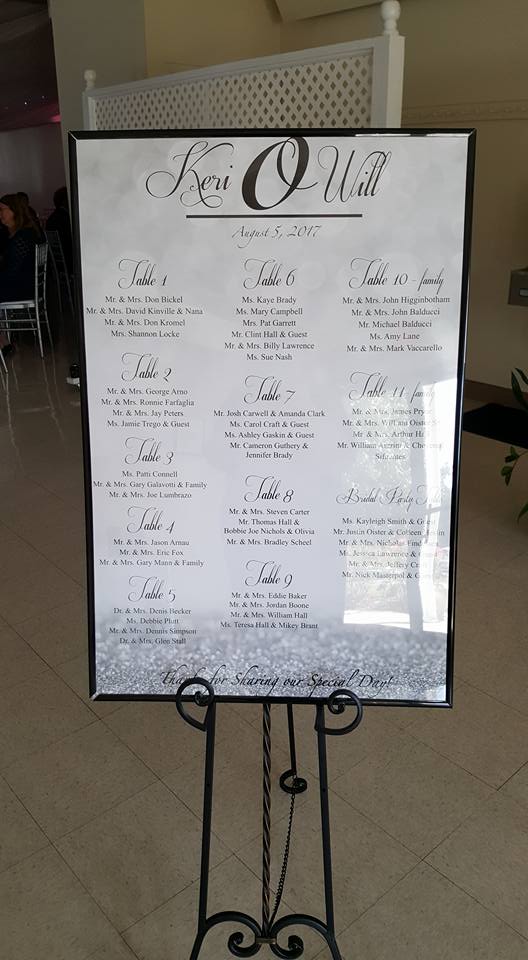 Keri O Will
August 5, 2017
Table 1
Mr. & Mrs. Don Bickel
Mr. & Mrs. David Kinville & Nana
Mr. & Mrs. Don Kromel
Mrs. Shannon Locke
Table 2
Mr. & Mrs. George Arno
Mr. & Mrs. Ronnie Farfaglia
Mr. & Mrs. Jay Peters
Ms. Jamie Trego & Guest
Table 3
Ms. Patti Connell
Mr. & Mrs. Gary Galavotti & Family
Mr. & Mrs. Joe Lumbrazo
Table 4
Mr. & Mrs. Jason Arnau
Mr. & Mrs. Eric Fox
Mr. & Mrs. Gary Mann & Family
Table 5
Dr. & Mrs. Denis Becker
Ms. Debbie Plutt
Mr. & Mrs. Dennis Simpson
Dr. & Mrs. Glen Stall
Table 6
Ms. Kaye Brady
Ms. Mary Campbell
Mrs. Pat Garrett
Mr. Clint Hall & Guest
Mr. & Mrs. Billy Lawrence
Ms. Sue Nash
Table 7
Mr. Josh Carwell & Amanda Clark
Ms. Carol Craft & Guest
Ms. Ashley Gaskin & Guest
Mr. Cameron Guthery &
Jennifer Brady
Table 8
Mr. & Mrs. Steven Carter
Mr. Thomas Hall &
Bobbie Joe Nichols & Olivia
Mr. & Mrs. Bradley Scheel
Table 9
Mr. & Mrs. Eddie Baker
Mr. & Mrs. Jordan Boone
Mr. & Mrs. William Hall
Ms. Teresa Hall & Mikey Brant
Table 10 - family
Mr. & Mrs. John Higginbotham
Mr. & Mrs. John Balducci
Mr. Michael Balducci
Ms. Amy Lane
Mr. & Mrs. Mark Vaccarello
Table 11 - family
Mr. & Mrs. James Pryor
Mr. & Mrs. William Oister
Mr. & Mrs. Arthur
Mr. William &
Bridal Party Table
Ms. Kayleigh Smith & Guest
Mr. Justin Oister & Colleen
Mr. & Mrs. Nicholas
Ms. Jessica Lawrence &
Mr. & Mrs. Jeffery
Mr. Nick Masterpol &
Thanks for Sharing our Special Day!